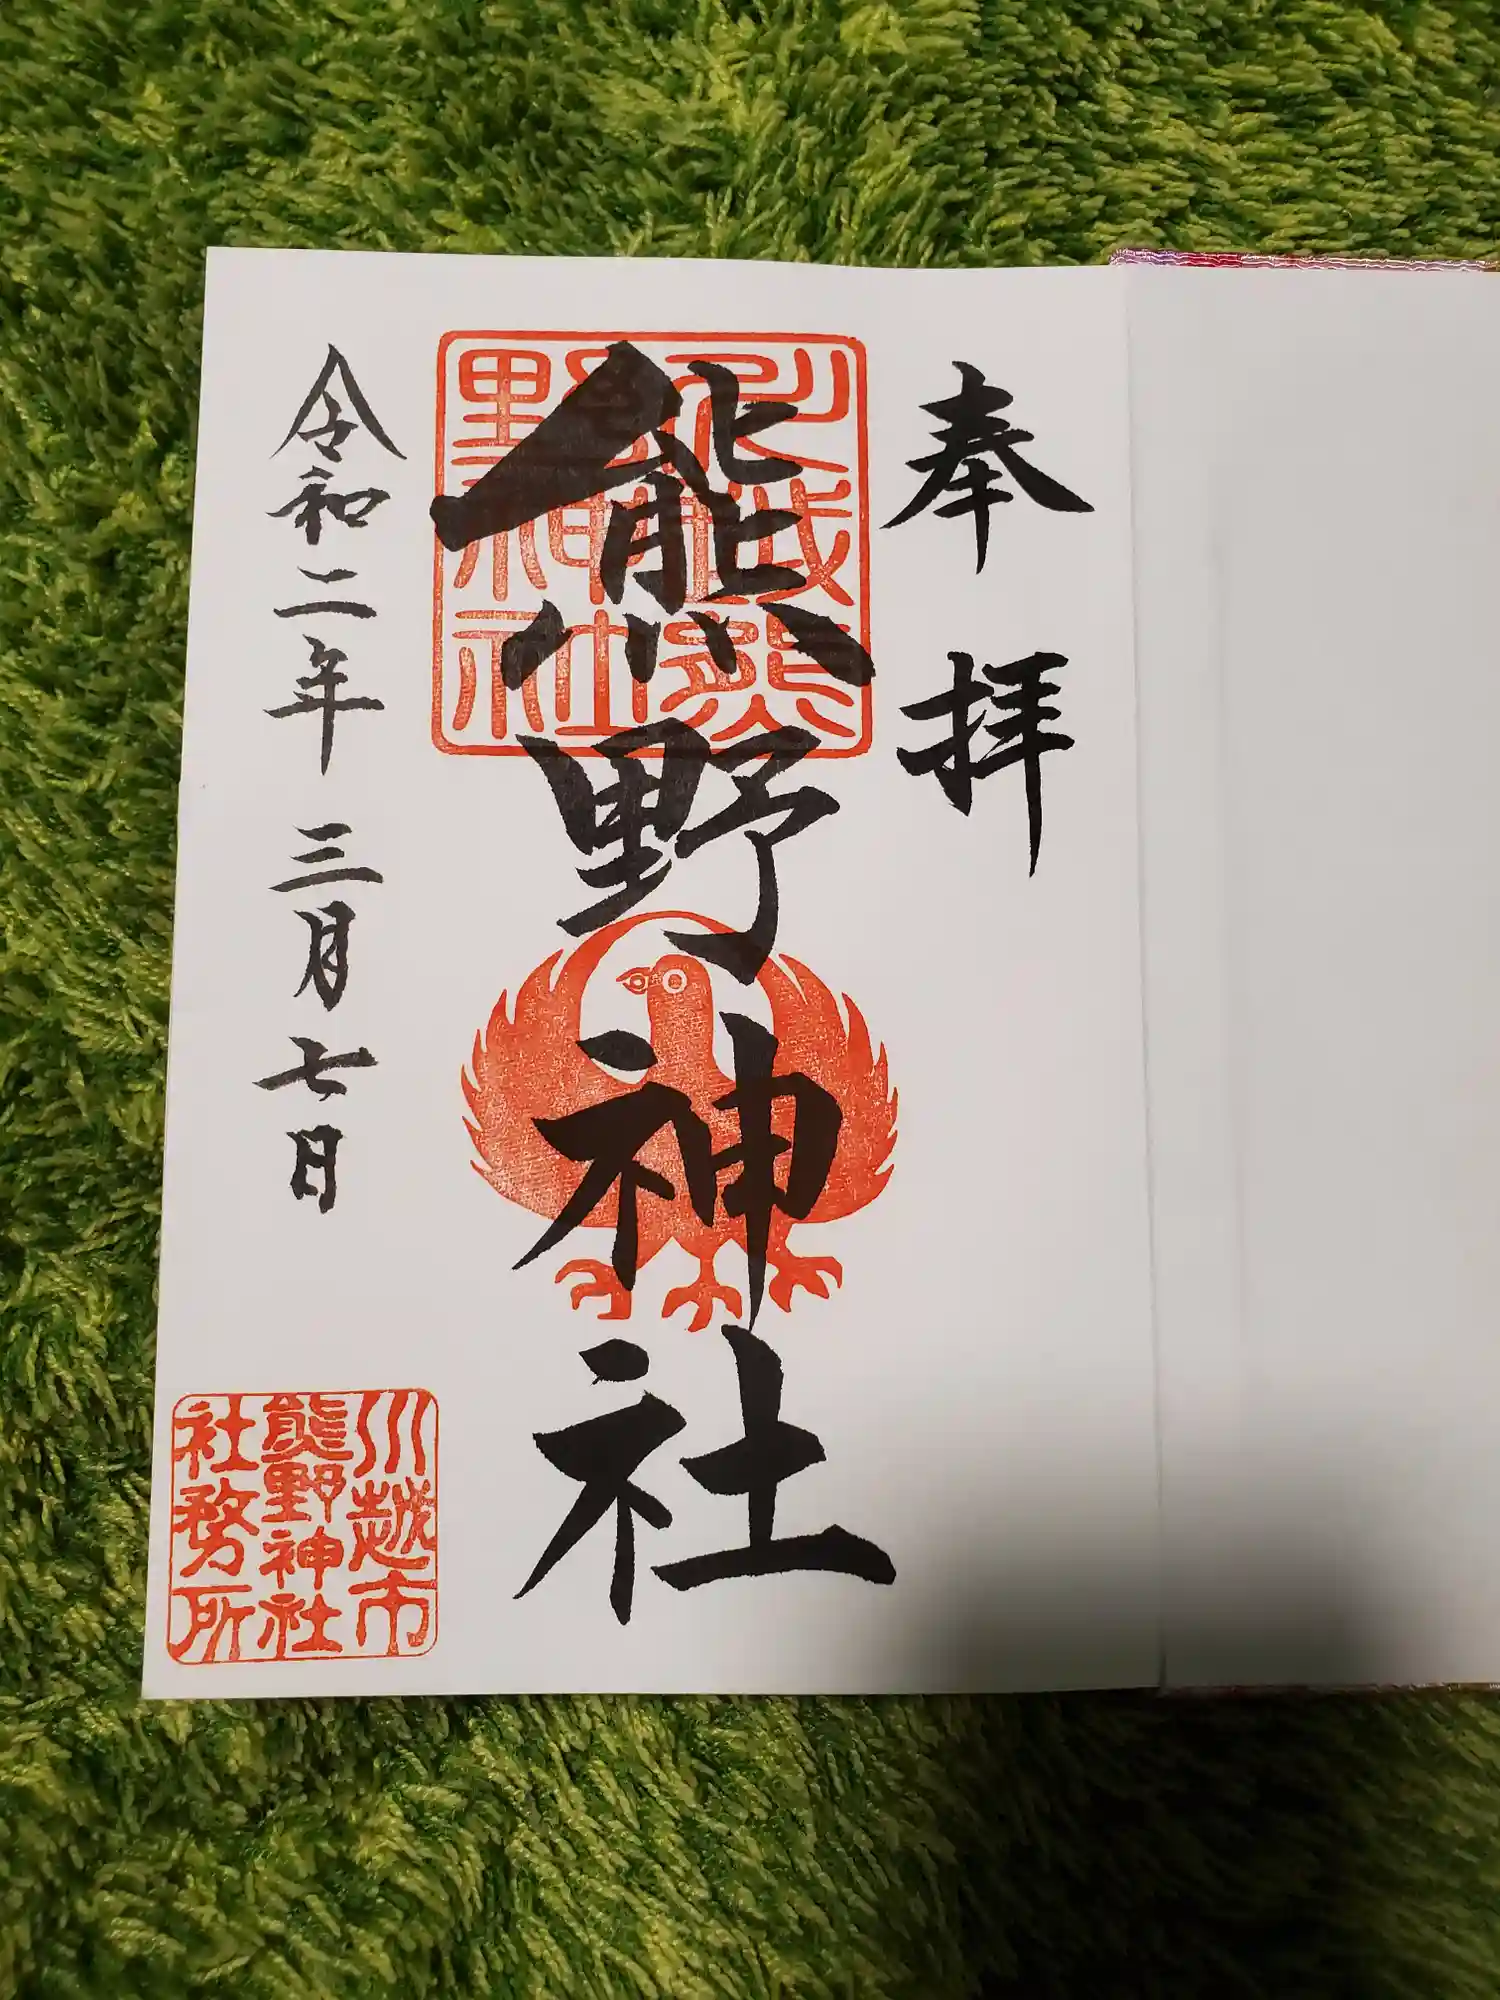 奉拝
川越熊
野神社
熊野神社
令和二年三月七日
川越市
熊野神社
社務所